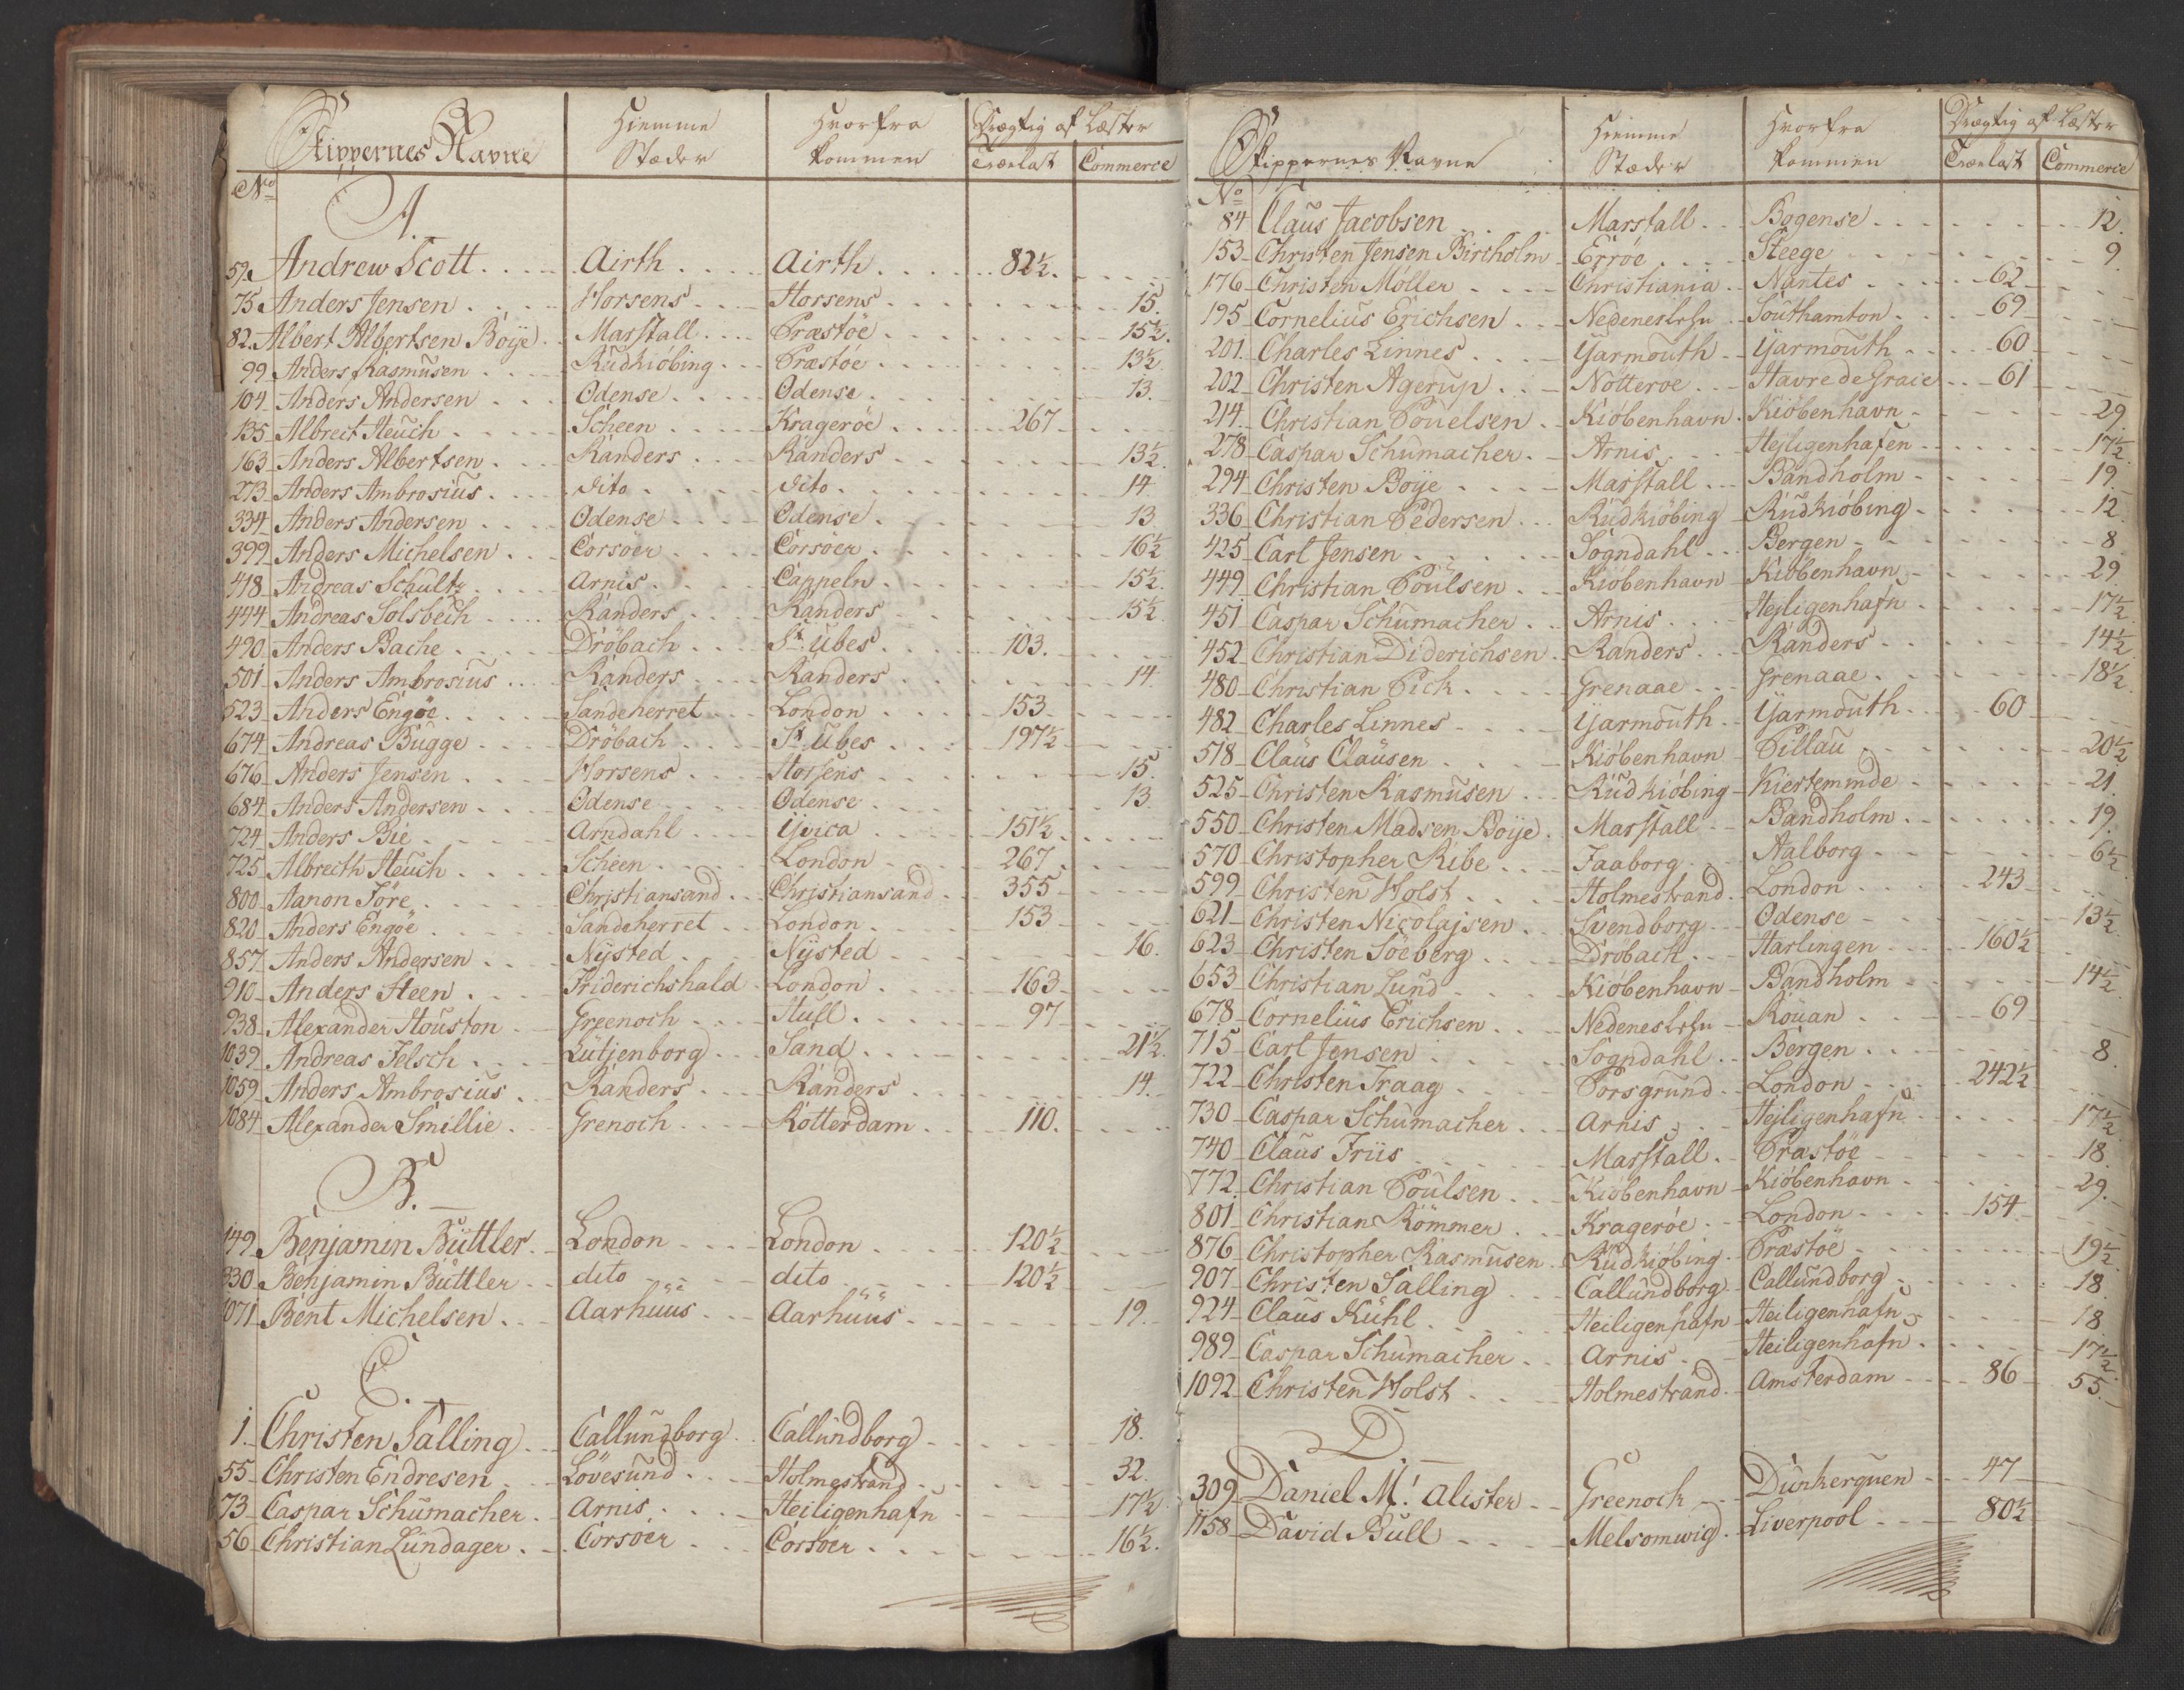 Skippernes Navne Hiemme Stæder Hvorfra kommen Drægtig af Læster
Trælast Commerce
No
A.
59. Andrew Scott Airth Airth 82½.
75 Anders Jensen Horsens Horsens 15.
82. Albert Albertsen Boÿe Marstall Præstöe 15½.
99 Anders Rasmusen Rudkiöbing Præstöe 13½.
104 Anders Andersen Odense Odense 13.
135 Albreit Heuch Scheen Krageröe 267
163 Anders Albertsen Randers Randers 13½.
273 Anders Ambrosius dito dito 14
334 Anders Andersen Odense Odense 13
399 Anders Michelsen Corsöer Corsöer 16½
418 Andreas Schultz Arnis Cappeln 15½.
444 Andreas Solsbech Randers Randers 15½
490 Anders Bache Dröbach St. Ubes 103.
501 Anders Ambrosius Randers Randers 14
523 Anders Engöe Sandeherret London 153
674 Andreas Bugge Dröbach St. Ubes 197½
676 Anders Jensen Horsens Horsens 15.
684 Anders Andersen Odense Odense 13.
724 Anders Bie Arndahl Ÿvica 151½
725 Albrecth Heuch Scheen London 267
800 Aanon Töre Christiansand Christiansand 355
820 Anders Engöe Sandeherret London 153
857 Anders Andersen Nÿsted Nÿsted 16.
910 Anders Steen Friderichshald London 163
938 Alexander Houston Greenoch Hull 97
1039 Andreas Jelsch Lütjenborg Sand 21½.
1059 Anders Ambrosius Randers Randers 14.
1084 Alexander Smillie Grenoch Rotterdam 110.
B.
149 Benjamin Büttler London London 120½
330 Benjamin Büttler dito dito 120½
1071 Bent Michelsen Aarhuus Aarhuus 19.
C.
1. Christen Salling Callundborg Callundborg 18.
55 Christen Endresen Lövesund Holmestrand 32.
73 Caspar Schumacher Arnis Heiligenhafn 17½
56 Christian Lundager Corsöer Corsöer 16½.
Skippernes Navne Hiemme Stæder Hvorfra kommen Drægtig af Læster
Trælast Commerce
No
84 Claus Jacobsen Marstall Bogense 12.
153 Christen Jensen Bircholm Erröe Steege 9.
176 Christen Möller Christiania Nantes 62
195 Cornelius Erichsen Nedenes Lehn Southamton 69
201 Charles Linnes Yarmouth Yarmouth 60
202 Christen Agerup Nötteroe Havre de Graie 61
214 Christian Pouelsen Kiöbenhavn Kiöbenhavn 29.
278 Caspar Schumacher Arnis Hejligenhafen 17½.
294 Christen Boÿe Marstall Bandholm 19.
336 Christian Pedersen Rudkiöbing Rudkiöbing 12.
425 Carl Jensen Sogndahl Bergen 8
449 Christian Poulsen Kiöbenhavn Kiöbenhavn 29.
451 Caspar Schumacher Arnis Hejligenhafn 17½.
452 Christian Diderichsen Randers Randers 14½
480 Christian Pich Grenaae Grenaae 18½.
482 Charles Linnes Yarmouth Yarmouth 60
518 Claus Clausen Kiöbenhavn Pillau 20½
525 Christen Rasmusen Rudkiöbing Kiertemmde 21.
550 Christen Madsen Boÿe Marstall Bandholm 19.
570 Christopher Ribe Faaborg Aalborg 6½.
599 Christen Holst Holmestrand London 243
621 Christen Nicolajsen Svendborg Odense 13½.
623 Christen Söeberg Dröbach Harlingen 160½
653 Christian Lund Kiöbenhavn Bandholm 14½.
678 Cornelius Erichsen Nedenes Lehn Rouan 69
715 Carl Jensen Sogndahl Bergen 8.
722 Christen Traag Porsgrund London 242½
730 Caspar Schumacher Arnis Hejligenhafn 17½
740 Claus Friis Marstall Præstöe 18.
772. Christian Poulsen Kiöbenhavn Kiöbenhavn 29.
801 Christian Römmer Krageröe London 154
876 Christopher Rasmusen Rudkiöbing Præstöe 19½
907 Christen Salling Callundborg Callundborg 18.
924 Claus Kühl Heiligenhafn Heiligenhafn 18
989 Caspar Schumacher Arnis Heiligenhafn 17½.
1092 Christen Holst Holmestrand Amsterdam 86 55.
D.
309 Daniel M! Alister Greenoch Dunkerquen 47
1158 David Bull Melsomwig Liverpool 80½